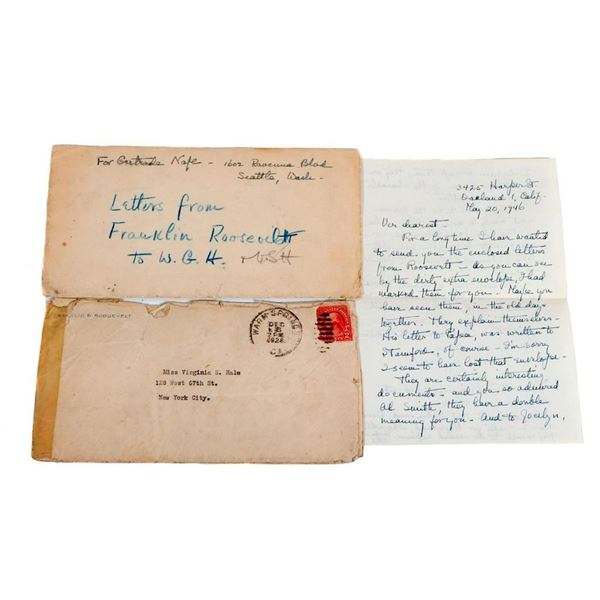 For Gertrude Nafe - 1602 Ravenna Blvd
Seattle, Wash-
Letters from
Franklin Roosevelt
to W.G.H. & VSH
FRANKLIN D. ROOSEVELT
WARM SPRINGS
DEC
7 PM
1928
GA.
Miss Virginia S. Hale
120 West 67th St.
New York City.
3425 Harper St.
Oakland 1, Calif-
May 20, 1946
dearest-
For a long time I have wanted
to send you the enclosed letters
from Roosevelt - as you can see
by the dirty extra envelope, I had
marked them for you - Maybe you
have seen them, in the old days
together. They explain themselves-
His letter to Papa, was written to
Stamford, of course - I'm sorry
I seem to have lost that envelope-
They are certainly interesting
documents - and you so admired
Al Smith, they have a double
meaning for you - And to Jocelyn,